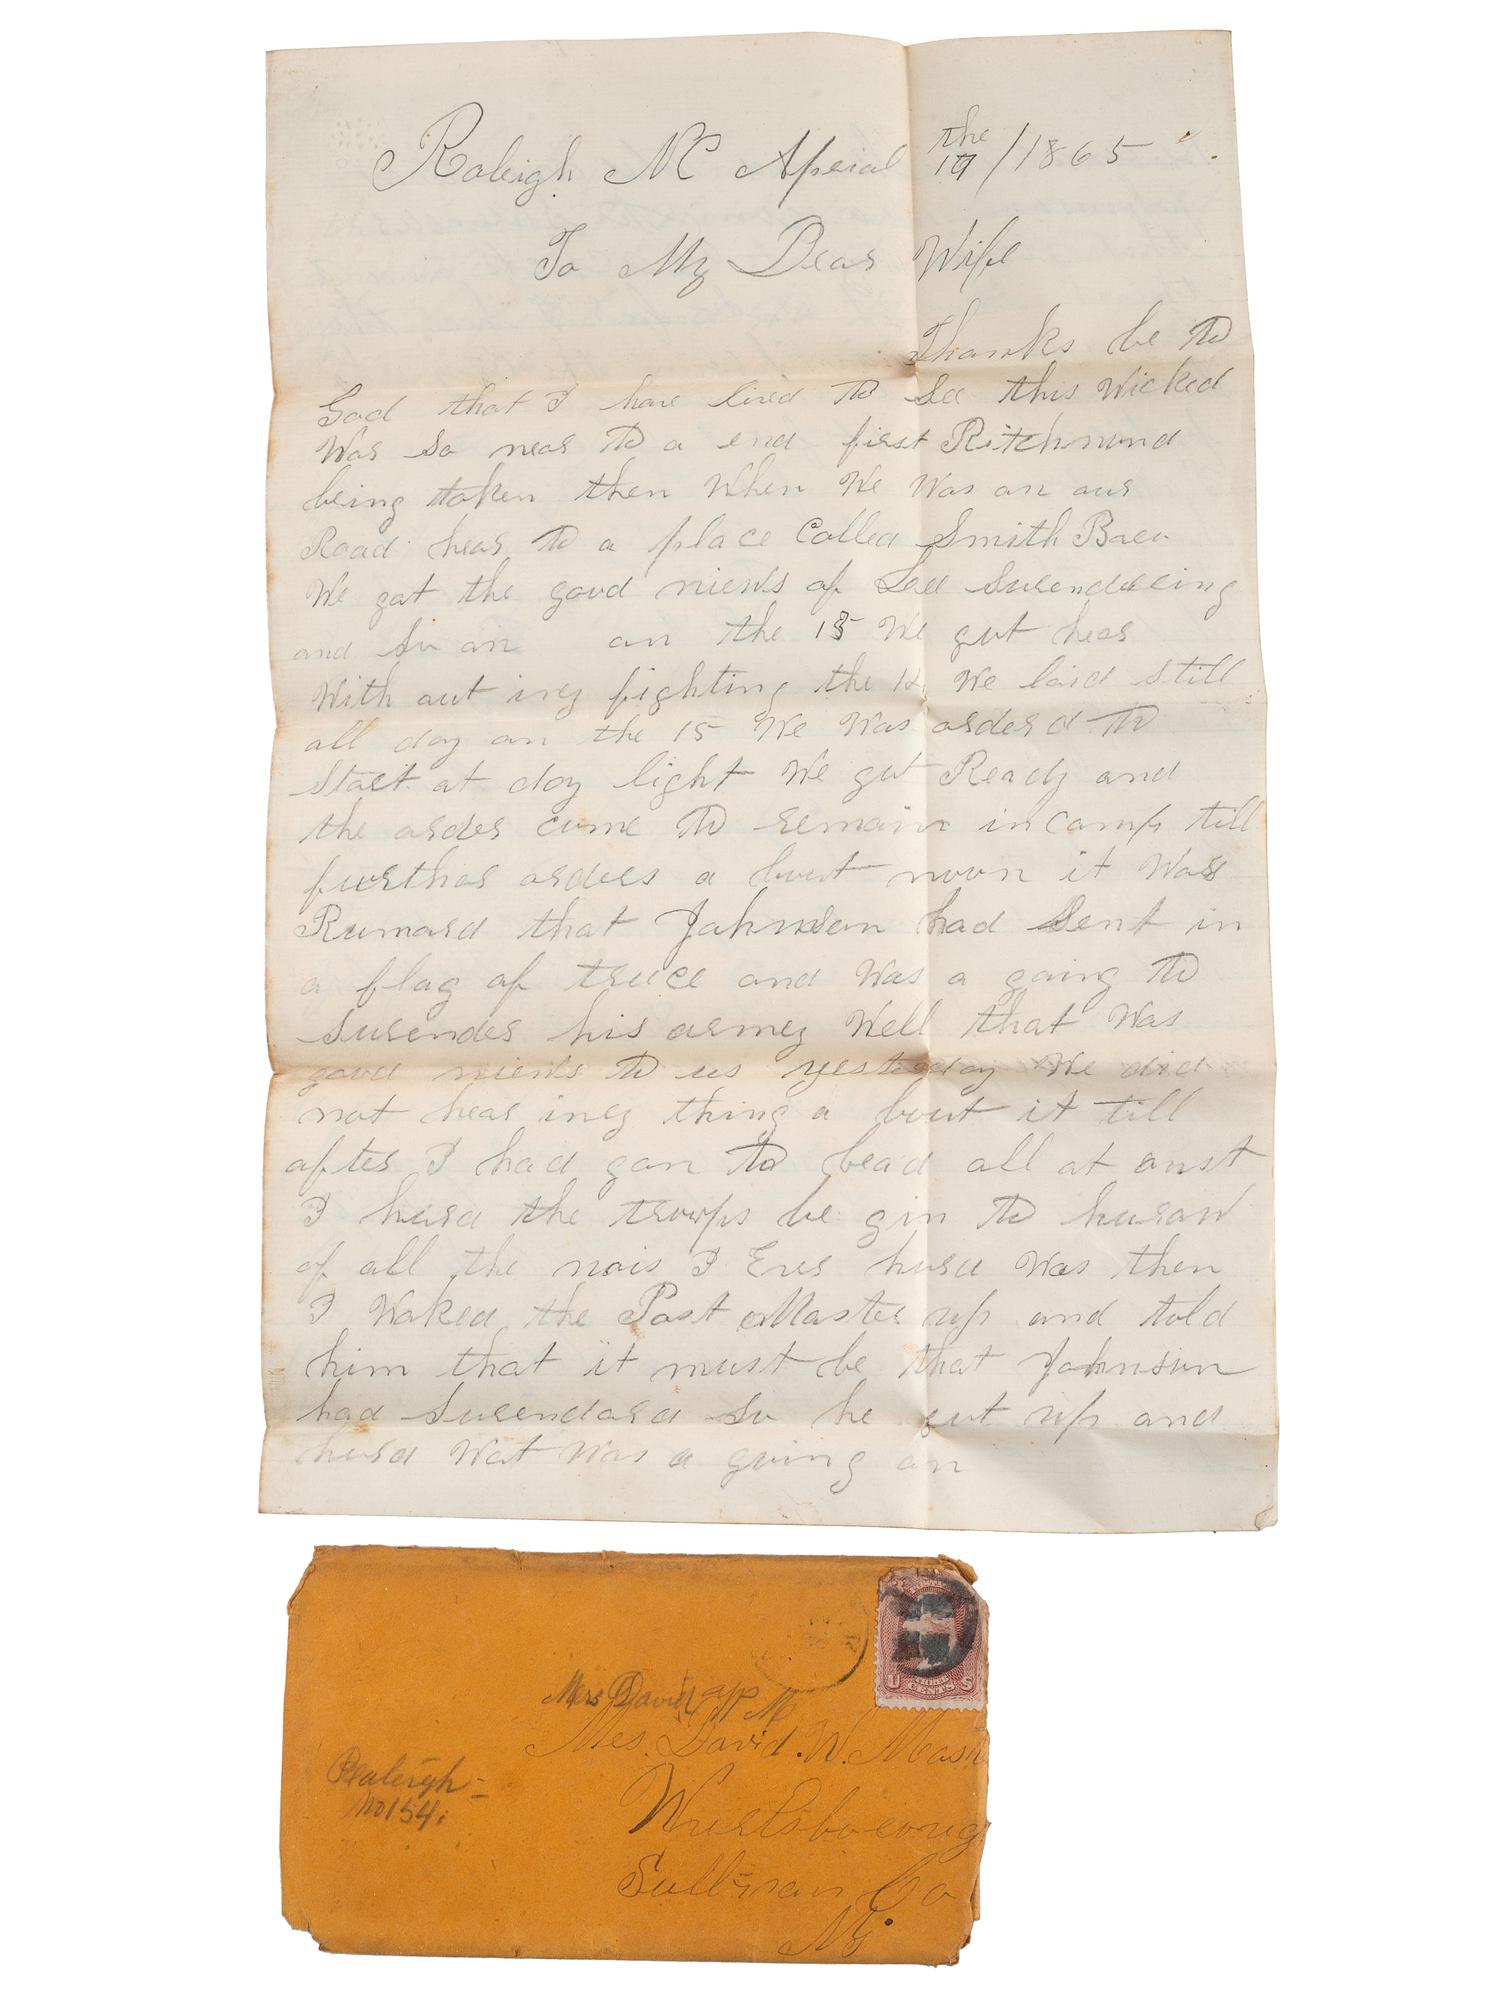 Raleigh NC Aperial the 19/1865
To My Dear Wife
Thanks be to
God that I have lived to See this Wicked
War so near to a end first Ritchmund
being taken then When We Was on our
Road hear to a place Called Smith
We got the good niews of Lee Surendereing
and So on on the 13 We gut hear
With out iny fighting the 14 We laid still
all day on the 15 We Was orderd to
Start at day light We gut Ready and
the order come to remain in camp till
further orders a bout noon it Was
Rumord that Johnson had Sent in
a flag of truce and Was a going to
Surender his armey Well that Was
good niews to us yesterday We did
not hear iney thing a bout it till
after I had gon to bead all at onst
I hurd the troops be gin to huraw
of all the nois I Ever hurd Was then
I Waked the Post Master up and told
him that it must be that Johnsun
had Surendard So he gut up and
hurd Wat Was a going on
Mrs David
Mrs. David. W. Mash
Raleigh
No 154
Wurtsbouroug
Sullivan Co
NY
U THREE CENTS S